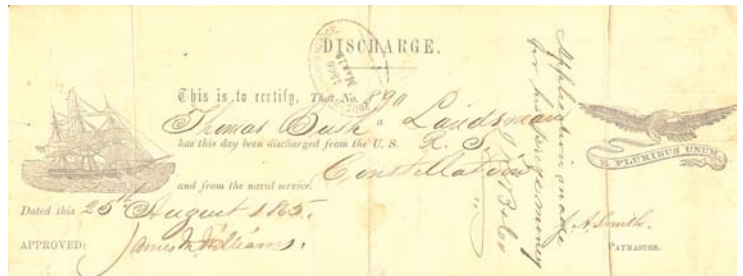 DISCHARGE.
1866
MAR 18
This is to certify, That No. 890
Thomas Bush a Landsman
has this day been discharged from the U. S. R. S.
Constellation
and from the naval service.
Dated this 25th August 1865.
APPROVED:
James M Williams.
J. A. Smith.
PAYMASTER.
E PLURIBUS UNUM.
Application made
for his prize money